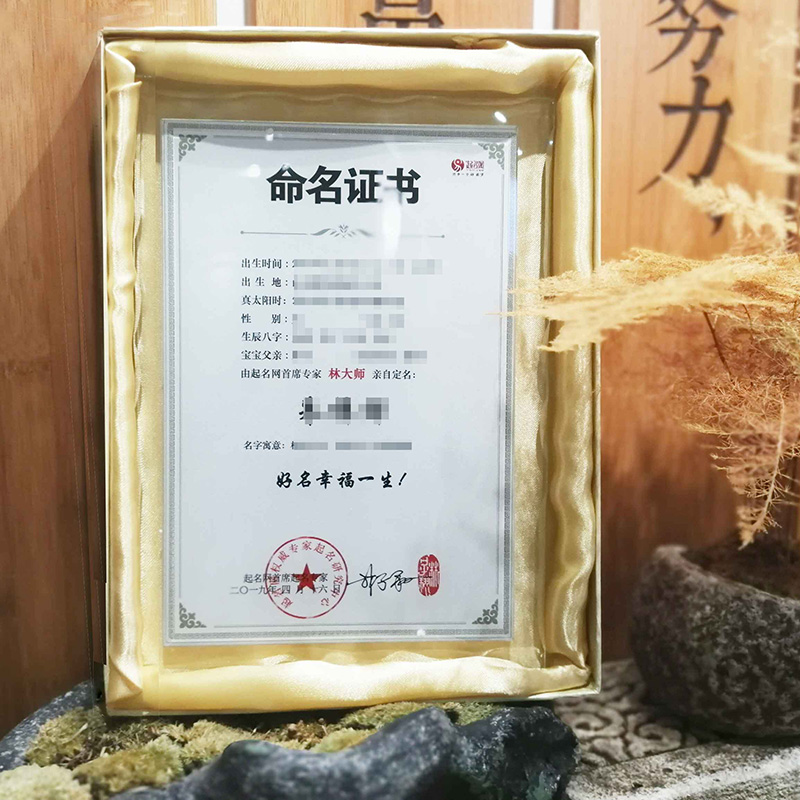 努力，
命名证书
出生时间：
出 生 地：
真太阳时：
性 别：
生辰八字：
宝宝父亲：
由起名网首席专家 林大师 亲自定名：
名字寓意：
好名幸福一生！
起名网首席起名专家
二〇一九年 四 月 十六
权威专家起名研究中心